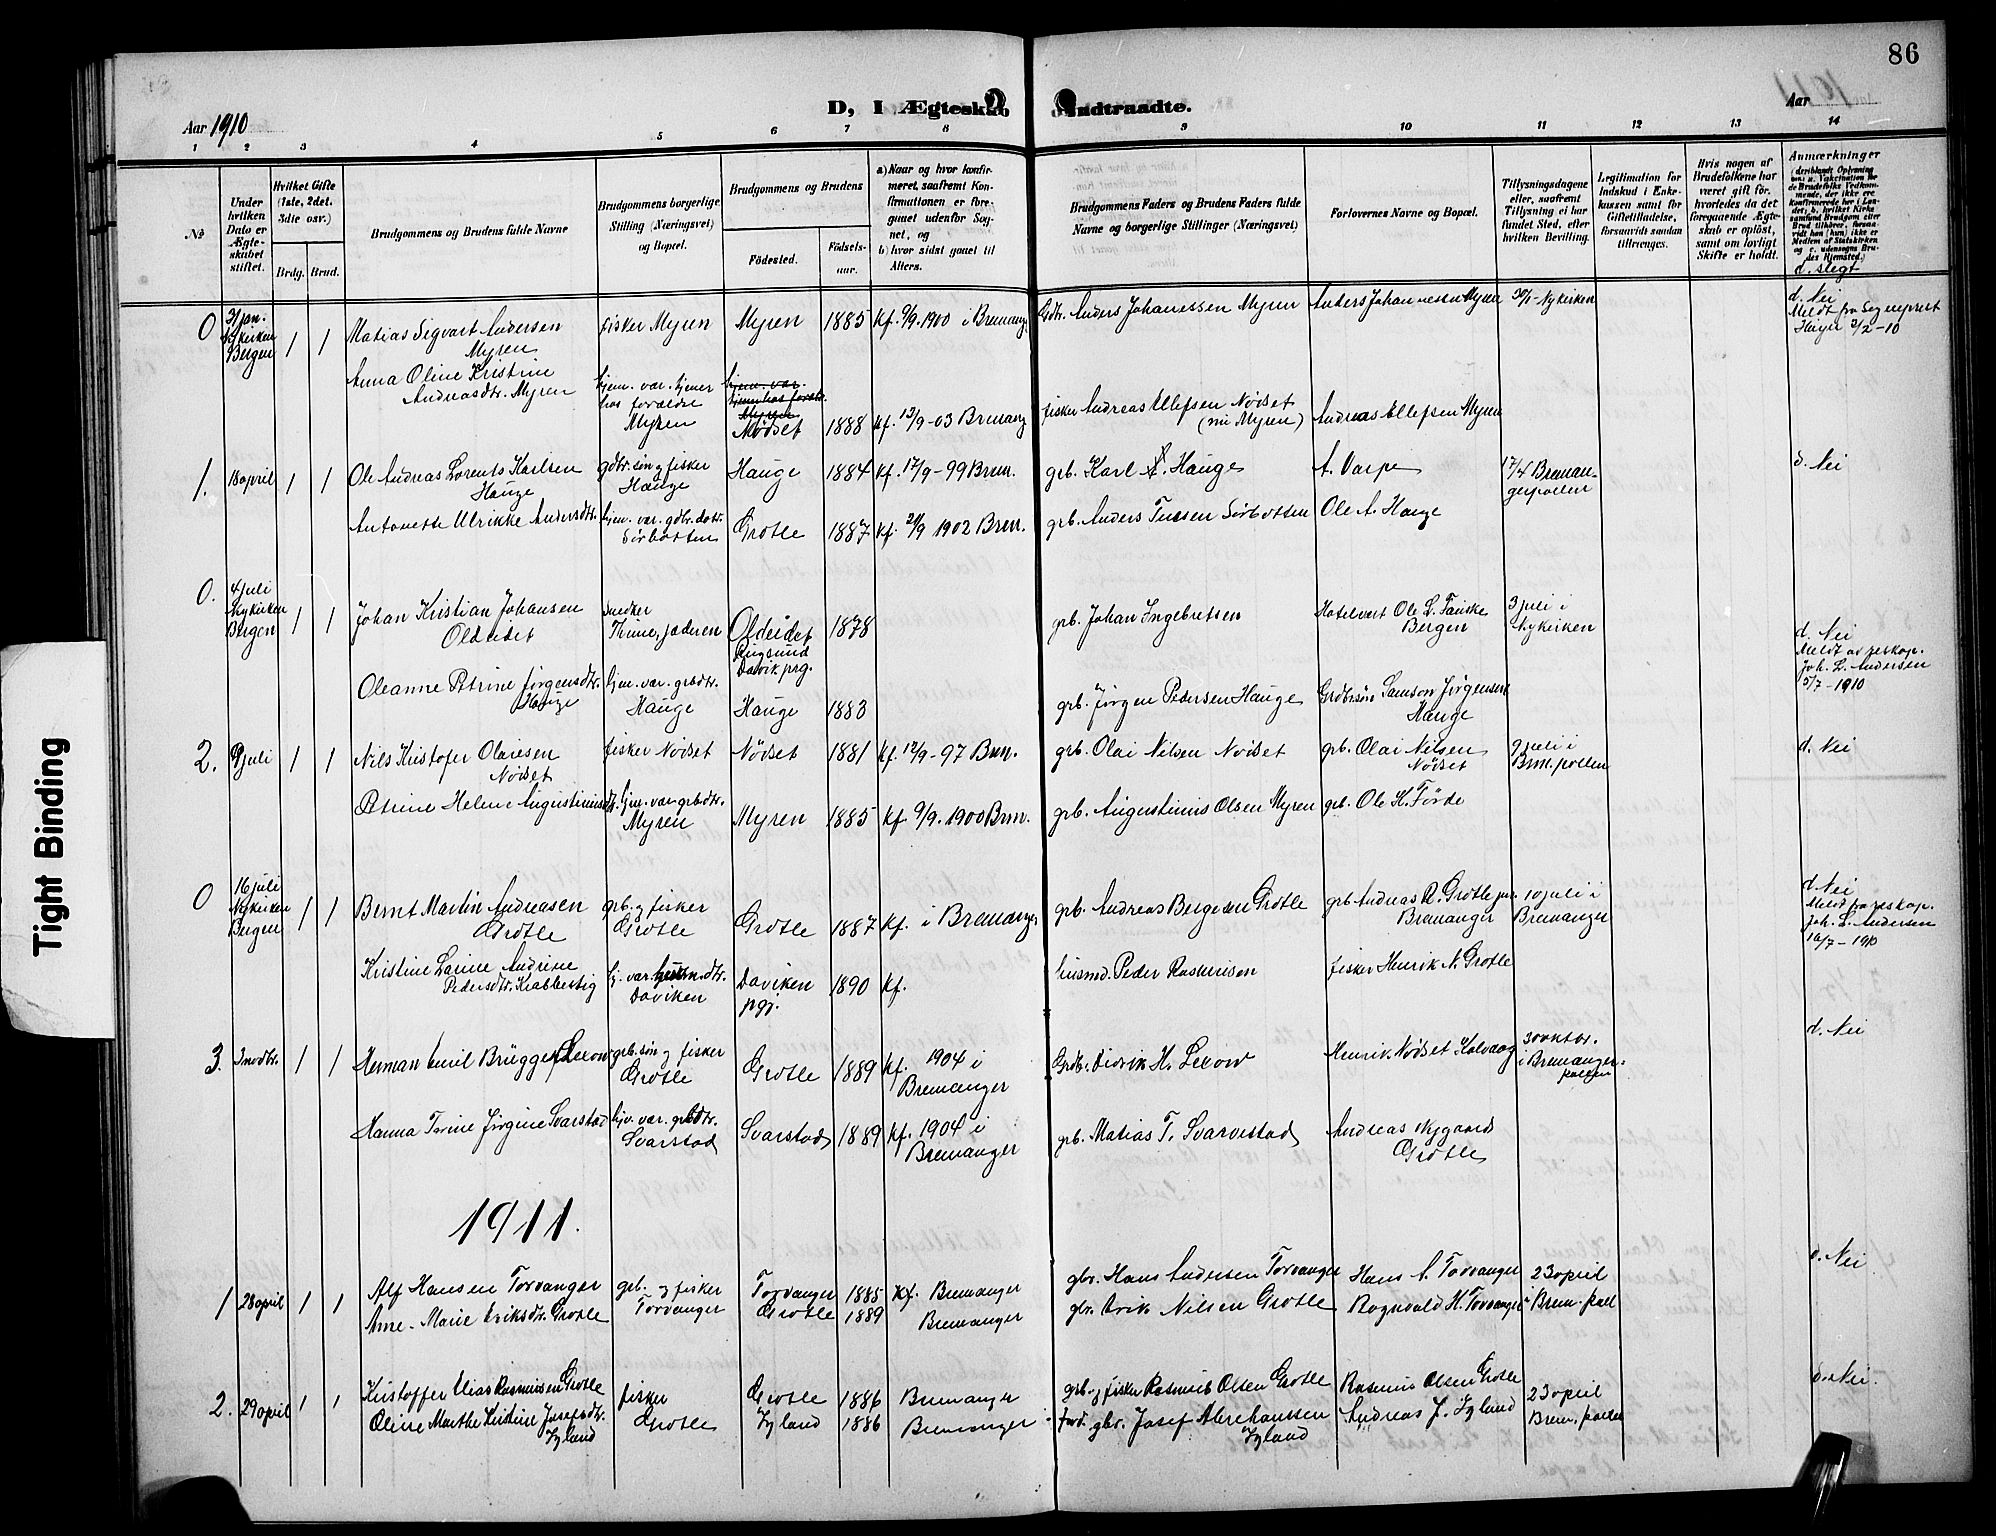 86
D, I Ægteskab Indtraadte.
Aar 1910
Aar 1911
1 2 3 4 5 6 7 8 9 10 11 12 13 14
№
Under hvilken Dato er Ægteskabet stiftet.
Hvilket Gifte (1ste, 2det. 3die osv.)
Brdg. Brud.
Brudgommens og Brudens fulde Navne
Brudgommens borgerlige Stilling (Næringsvei) og Bopæl.
Brudgommens og Brudens
Fødested.
Fødselsaar.
a) Naar og hvor konfirmeret, saafremt Konfirmationen er foregaaet udenfor Sognet, og
b) hvor sidst gaaet til Alters.
Brudgommens Faders og Brudens Faders fulde Navne og borgerlige Stillinger (Næringsvei)
Forlovernes Navne og Bopæl.
Tillysningsdagene eller, saafremt Tillysning ei har fundet Sted, efter hvilken Bevilling.
Legitimation for Indskud i Enkekassen samt for Giftetilladelse, forsaavidt saadan tiltrænges.
Hvis nogen af Brudefolkene har været gift før, hvorledes da det foregaaende Ægteskab er opløst, samt om lovligt Skifte er holdt.
Anmærkninger
d. slegt
0 31 jan. Nykirken Bergen 1 1 Matias Sigvart Andersen Myren fisker Myren Myren 1885 kf. 9/9. 1900 i Bremang. Gdbr. Anders Johannessen Myren Anders Johannessen Myren 30/1 - Nykirken d. Nei Meldt fra Sogneprest Høyer 3/2-10
Anna Oline Kristine Andreasdtr. Myren hjem. var. tjener hos forældre Myren Nødset 1888 kf. 13/9-03 Bremang fisker Andreas Ellefsen Nødset (nu Myren) Andreas Ellefsen Myren
1. 18 april 1 1 Ole Andreas Lorents Karlsen Hauge gdbr. søn og fisker Hauge Hauge 1884 kf. 17/9-99 Brem. grb. Karl A. Hauge A. Varpe 17/4 Bremangerpollen d. Nei
Antonette Ulrikke Andersdtr. hjem. var. gdbr. datr. Sørbotten Grotle 1887 kf. 21/9 1902 Brem. grb. Anders Tuesen Sørbotten Ole A. Hauge
0. 4 juli Nykirken Bergen 1 1 Johan Kristian Johansen Oldeidet snedker Thime, Jæderen Oldeidet Rugsund Davik prg. 1878 grb. Johan Ingebretsen Hotelvert Ole L. Fauske Bergen 3 juli i Nykirken d. Nei Meldt av reskap. Joh. L. Andersen 5/7-1910
Oleanne Petrine Jørgensdtr. Hauge hjem. var. grbdtr. Hauge Hauge 1883 grb. Jørgen Pedersen Hauge Grdbr.søn Samson Jørgensen Hauge
2. 9 juli 1 1 Nils Kristofer Olaisen Nødset fisker Nødset Nødset 1881 kf. 12/9-97 Brem. grb. Olai Nilsen Nødset grb. Olai Nilsen Nødset 9 juli i Brem. pollen d. Nei
Petrine Helene Augustinusdtr. hjem. var. grbdtr. Myren Myren 1885 kf. 9/9. 1900 Brem. grb. Augustinus Olsen Myren grb. Ole H. Førde
0 16 juli Nykirken Bergen 1 1 Bernt Martin Andreasen Grotle grb. og fisker Grotle Grotle 1887 kf. i Bremanger grb. Andreas Bergesen Grotle grb Andreas R. Grotle jun. Bremanger 10 juli i Bremanger d. Nei Meldt fra reskap. Joh. L. Andersen 16/7-1910
Kristine Larine Andrine Pedersdtr. Krabbestig hj. var. husm.dtr. Daviken Daviken pgj. 1890 kf. husmd. Peder Rasmusen fisker Henrik N. Grotle
3. 3 novbr. 1 1 Herman Emil Brügger Lexow grb. søn og fisker Grotle Grotle 1889 kf. 1904 i Bremanger Grdb. Didrik H. Lexow Henrik Nødset Kalvaag 30 oktbr. i Bremangerpollen d. Nei
Hanna Torine Jørgine Svarstad hjv. var. grbdtr. Svarstad Svarstad 1889 kf. 1904 i Bremanger grb. Matias T. Svarvestad Andreas Nygaard Grotle
1911.
1 28 april 1 1 Alf Hansen Torvanger grb. og fisker Torvanger Torvanger 1885 kf. Bremanger gbr. Hans Andersen Torvanger Hans A. Torvanger 23 april i Brem. poll d. Nei
Ane Marie Eriksdtr. Grotle Grotle 1889 Bremanger gbr. Erik Nilsen Grotle Ragnvald H. Torvanger
2. 29 april 1 1 Kristoffer Elias Rasmussen Grotle fisker Grotle Grotle 1886 Bremanger grb. og fisker Rasmus Olsen Grotle Rasmus Olsen Grotle 23 april Brem. pollen d. Nei.
Oline Marthe Kristine Josefsdtr. Igland Igland 1886 Bremanger ford. gbr. Josef Abrahamsen Igland Andreas J. Igland
Tight Binding